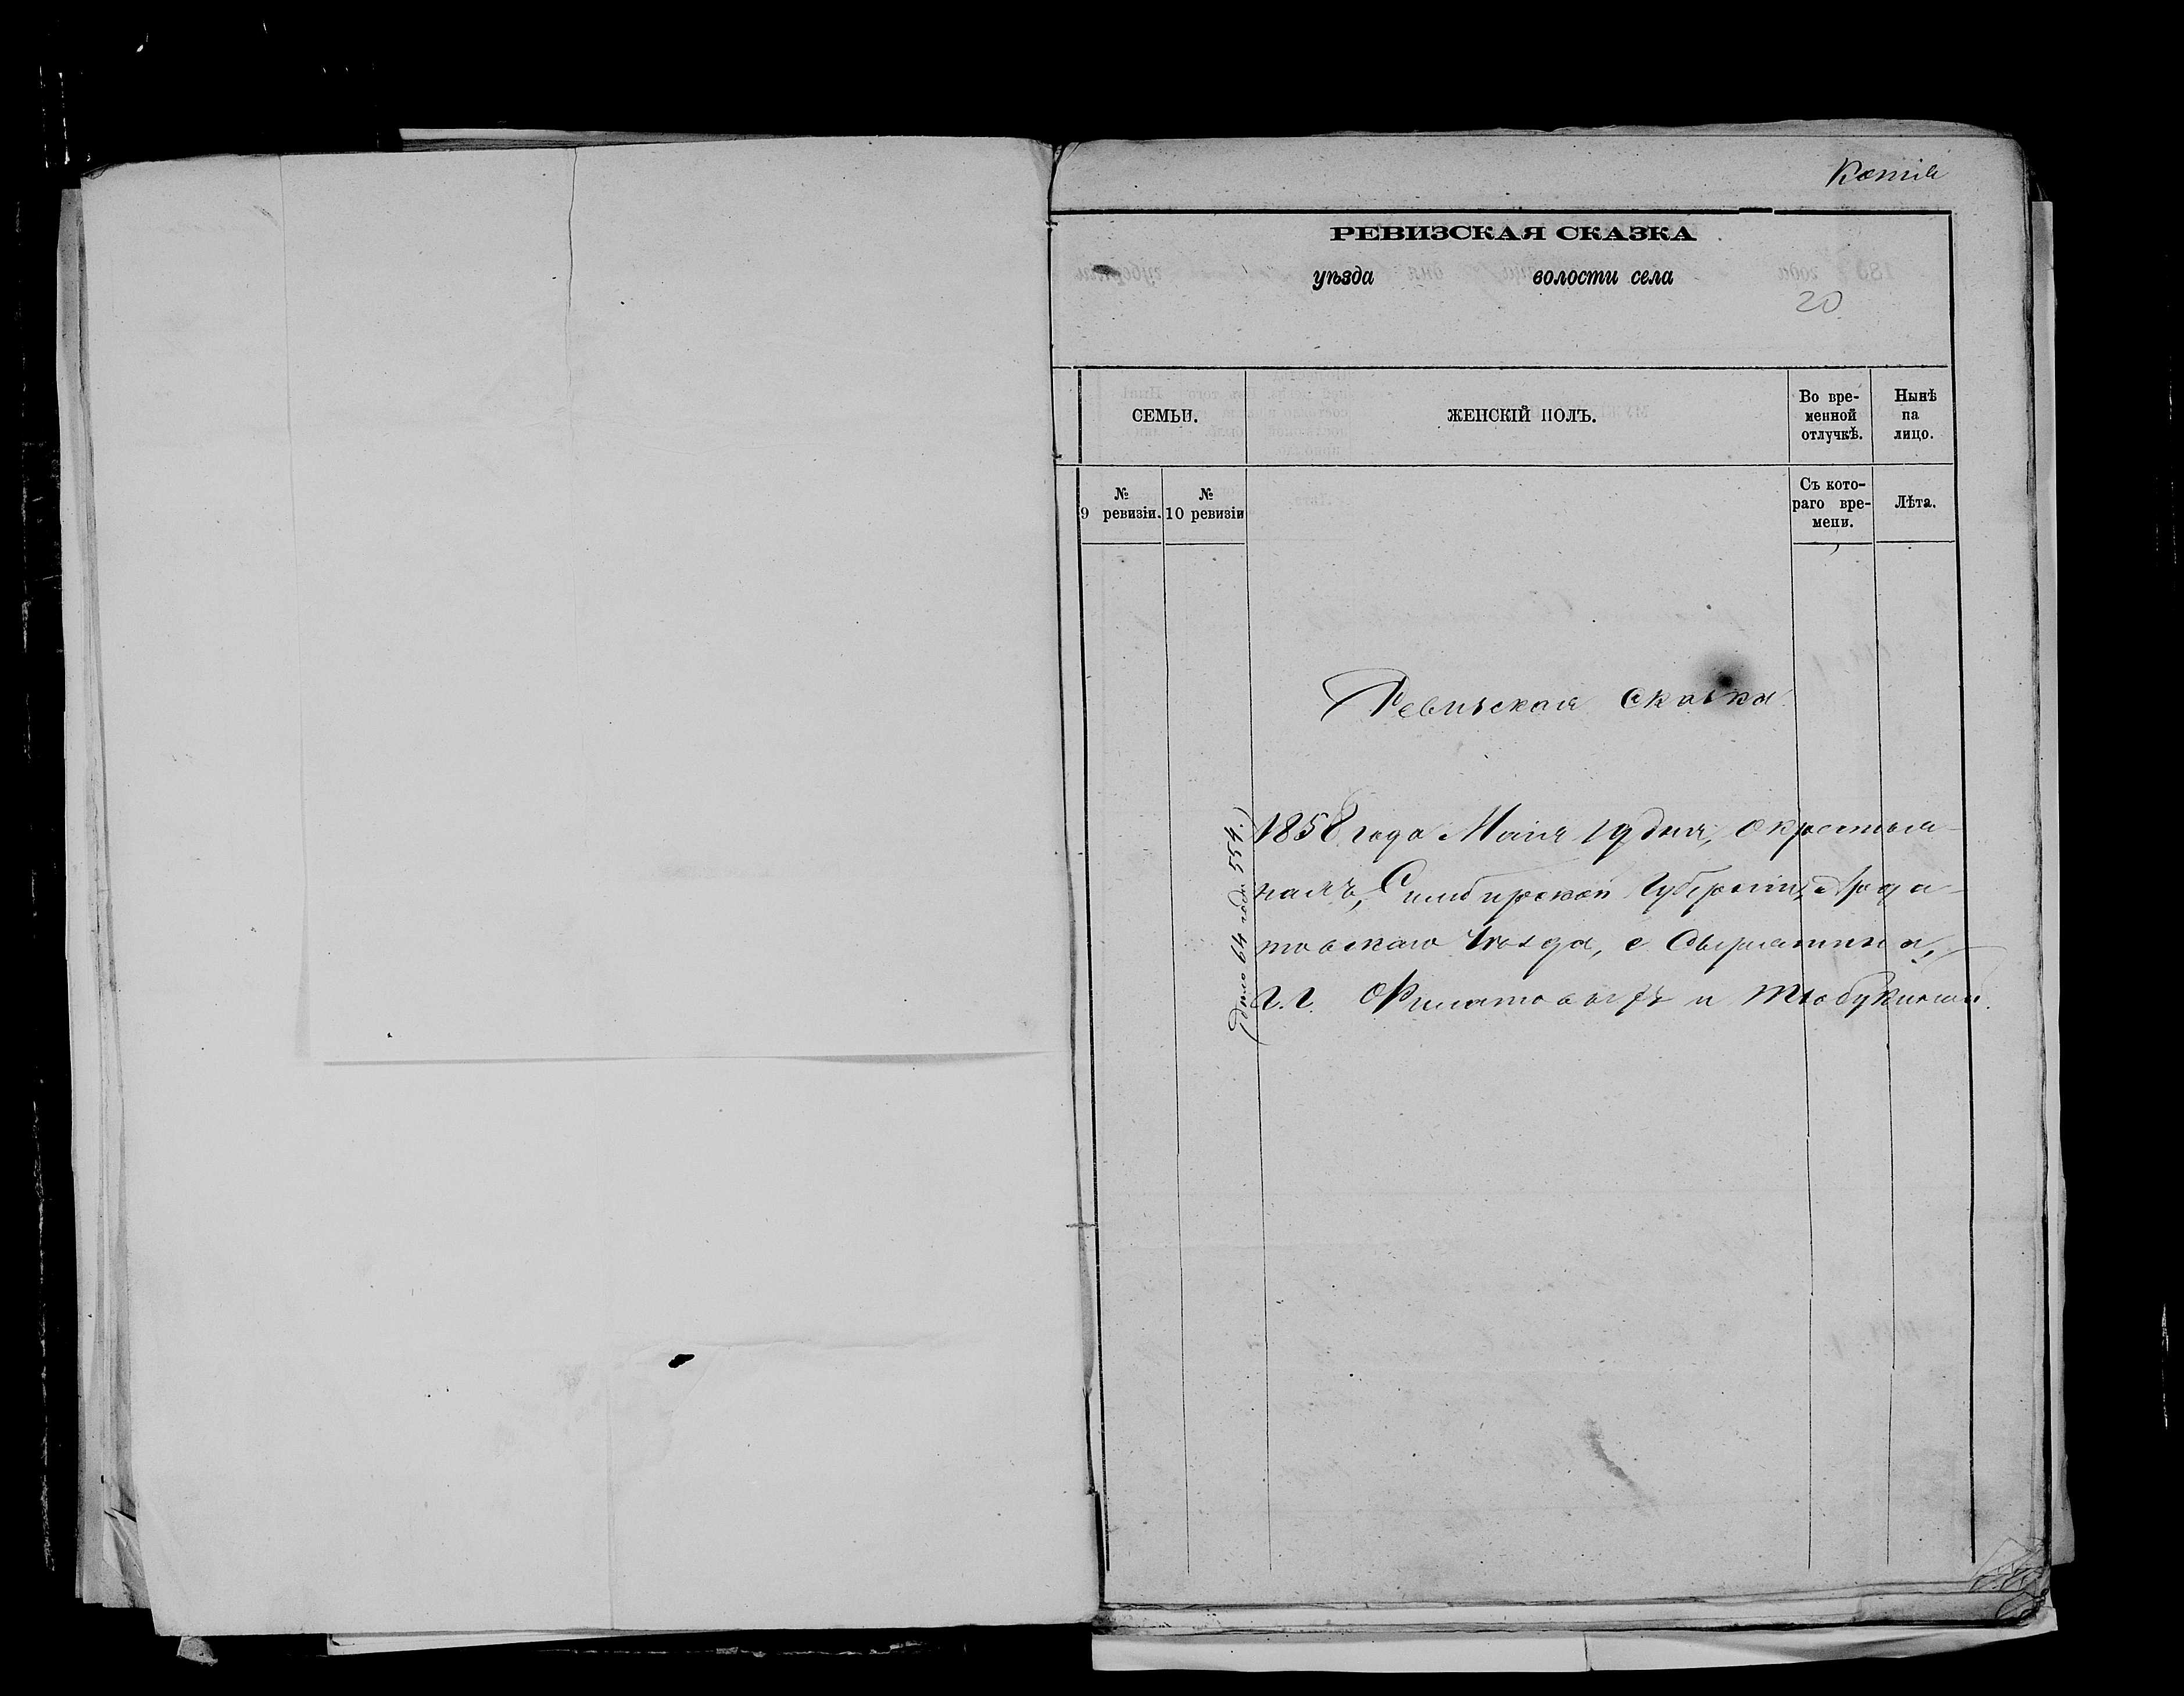 Копія
РЕВИЗСКАЯ СКАЗКА
уѣзда волости села
20
СЕМЬИ.
ЖЕНСКІЙ ПОЛЪ.
Во вре-
менной
отлучкѣ.
Нынѣ
на
лицо.
№
9 ревизіи.
№
10 ревизіи
Съ кото-
раго вре-
мени.
Лѣта.
Ревизская сказка
1858 года Маія 19 дня, о крестья-
намъ, Симбирской Губерніи, Арда-
товскаго Уѣзда, с.
Г.г. Филатовыхъ и
(дѣло 64 года 554.)